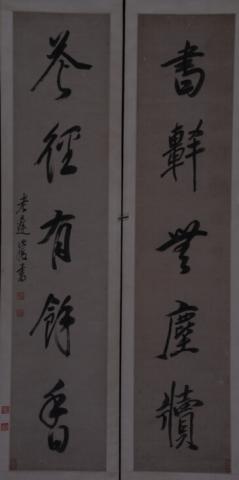 書軒無塵牘
花徑有餘香
老蓮洪綬書